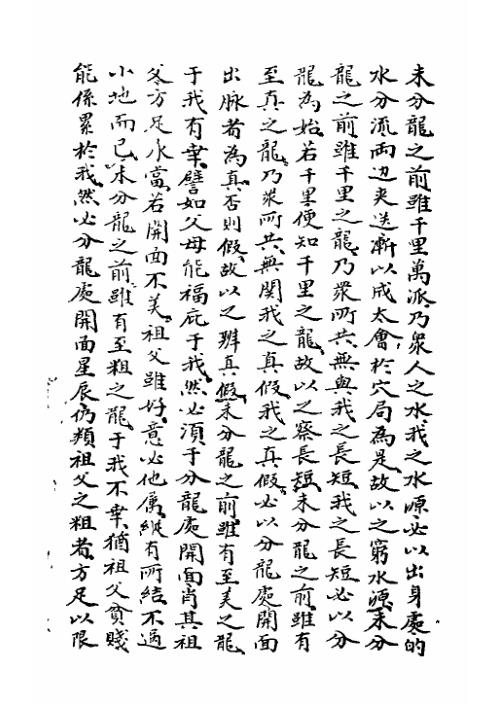 未分龍之前雖千里萬派乃衆人之水我之水源必以出身處的
水分流兩边夾送漸以成大會於穴局為是故以之窮水源未分
龍之前雖千里之龍乃衆所共無與我之長短我之長短必以分
龍為始若千里便知千里之龍故以之察長短未分龍之前雖有
至真之龍乃衆所共無関我之真假我之真假必以分龍處開面
出脉者為真否則假故以之辨真假未分龍之前雖有至美之龍
于我有幸譬如父母能福庇于我然必須于分龍處開面肖其祖
父方足承當若開面不美祖父雖好意必他属縱有所結不過
小地而已未分龍之前雖有至粗之龍于我不幸猶祖父貧賤
能係累於我然必分龍處開面星辰仍類祖父之粗者方足以限